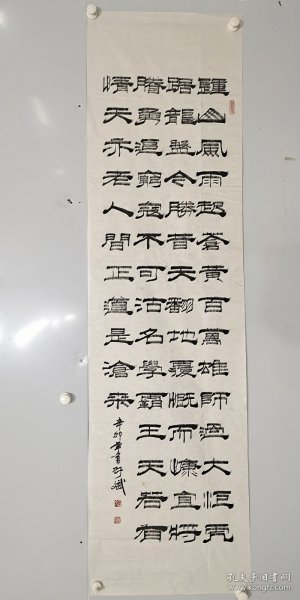 鍾山風雨起蒼黃百萬雄師過大江虎
踞龍盤今勝昔天翻地覆慨而慷宜將
賸勇追窮寇不可沽名學霸王天若有
情天亦老人間正道是滄桑
辛卯年
孔夫子旧书网